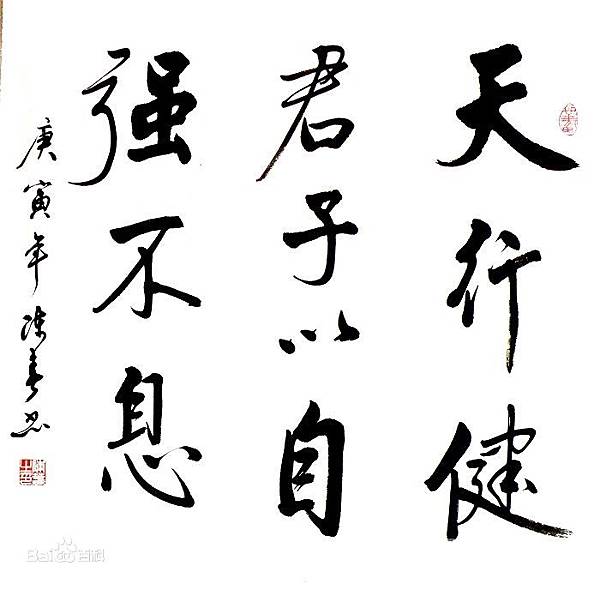 天行健
君子以自
强不息
庚寅年陈春思
Bai百科